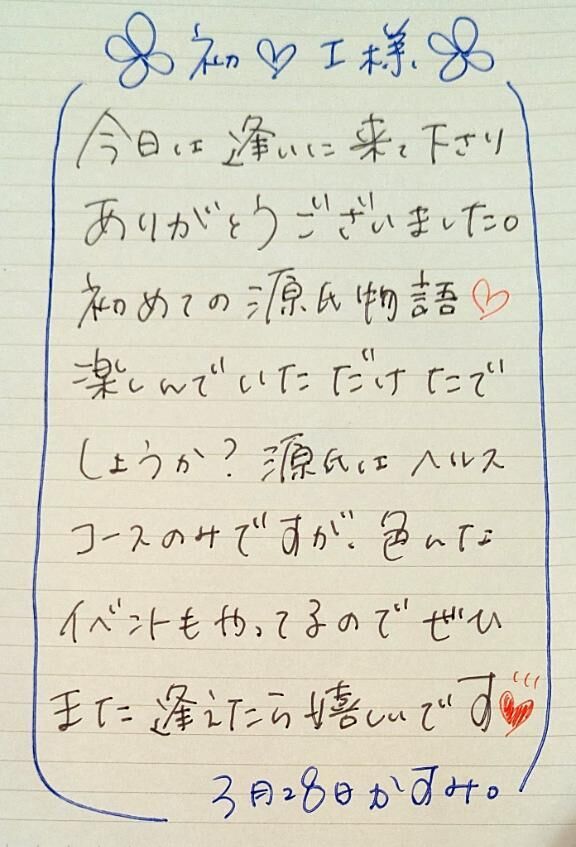 初♡工様
今日は逢いに来て下さり
ありがとうございました。
初めての源氏物語♡
楽しんでいただけたで
しょうか?源氏はヘルス
コースのみですが、色んな
イベントもやってるのでぜひ
また逢えたら嬉しいです♥
3月28日かすみ。